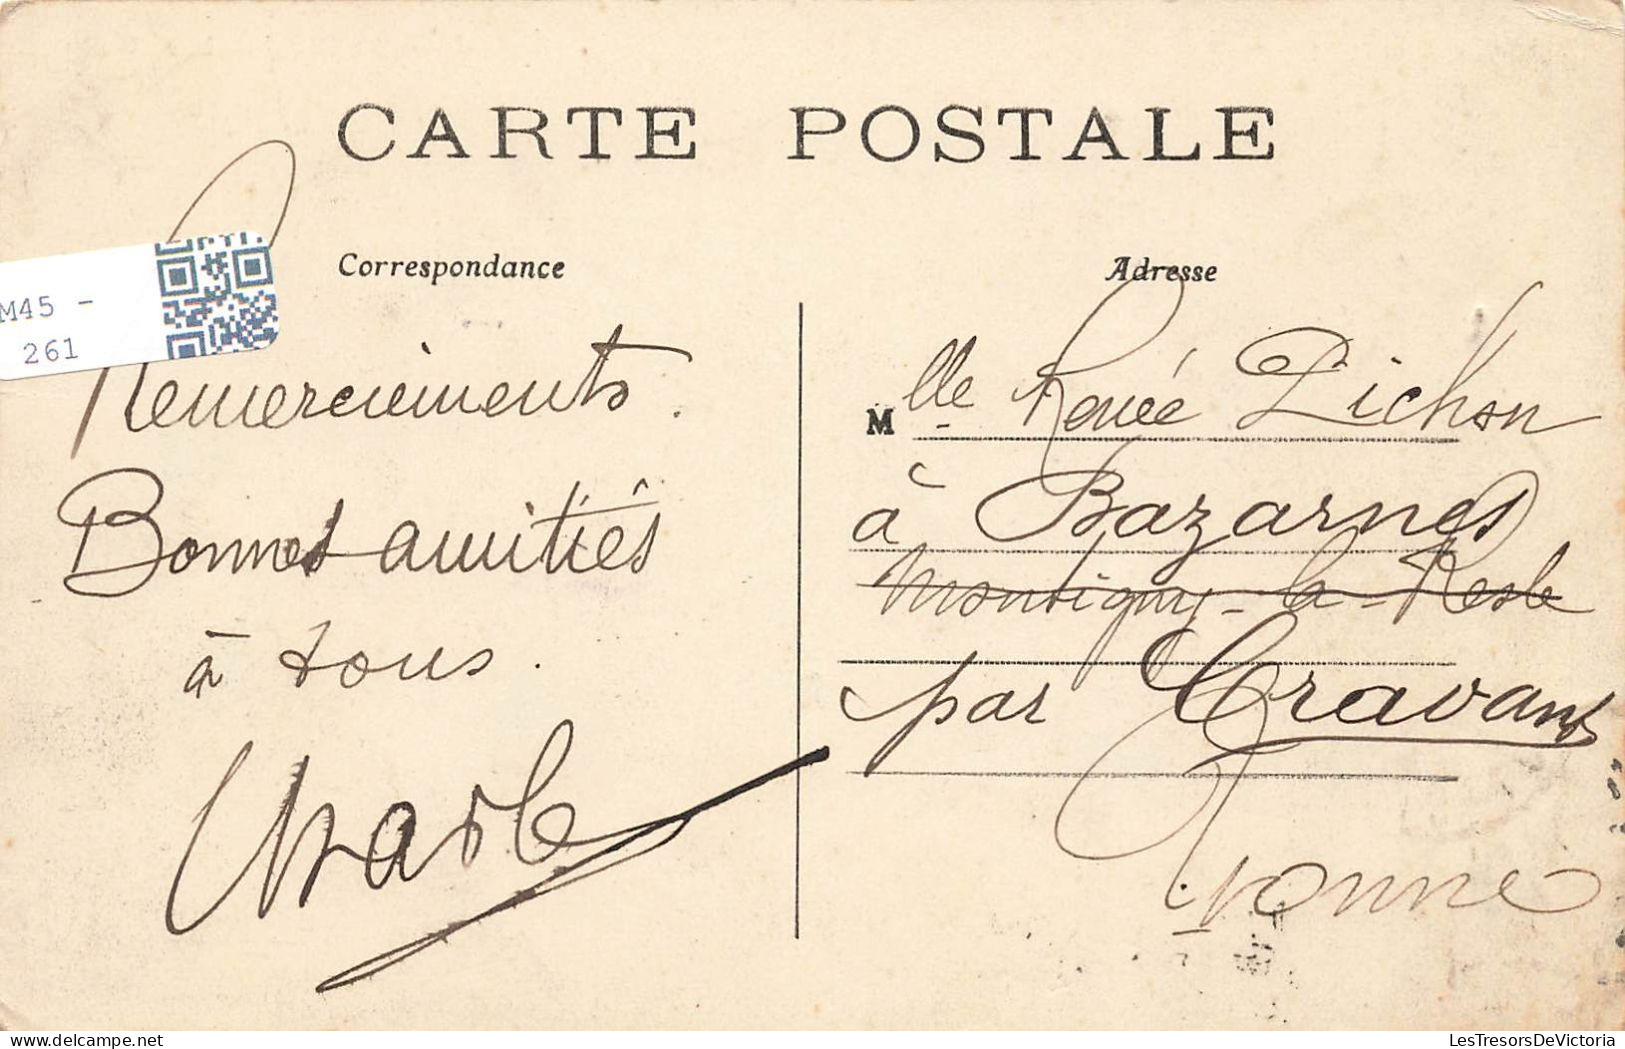 CARTE POSTALE
Correspondance
Adresse
M45 -
261
Remerciements.
Bonnes amitiés
à tous.
Mlle Renée Pichon
à Bazarnes
Montigny-la-Resle
par Cravant
Yonne
LesTresorsDeVictoria.com